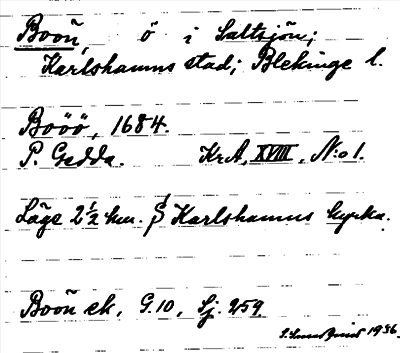 Boön, ö i Saltsjön;
Karlshamns stad; Blekinge l.
Boöö, 1684.
P. Gedda. KrA, XVIII, N:o 1.
Läge 2½ km. S Karlshamns kyrka.
Boön ek, G.10, Sj. 259
1936.